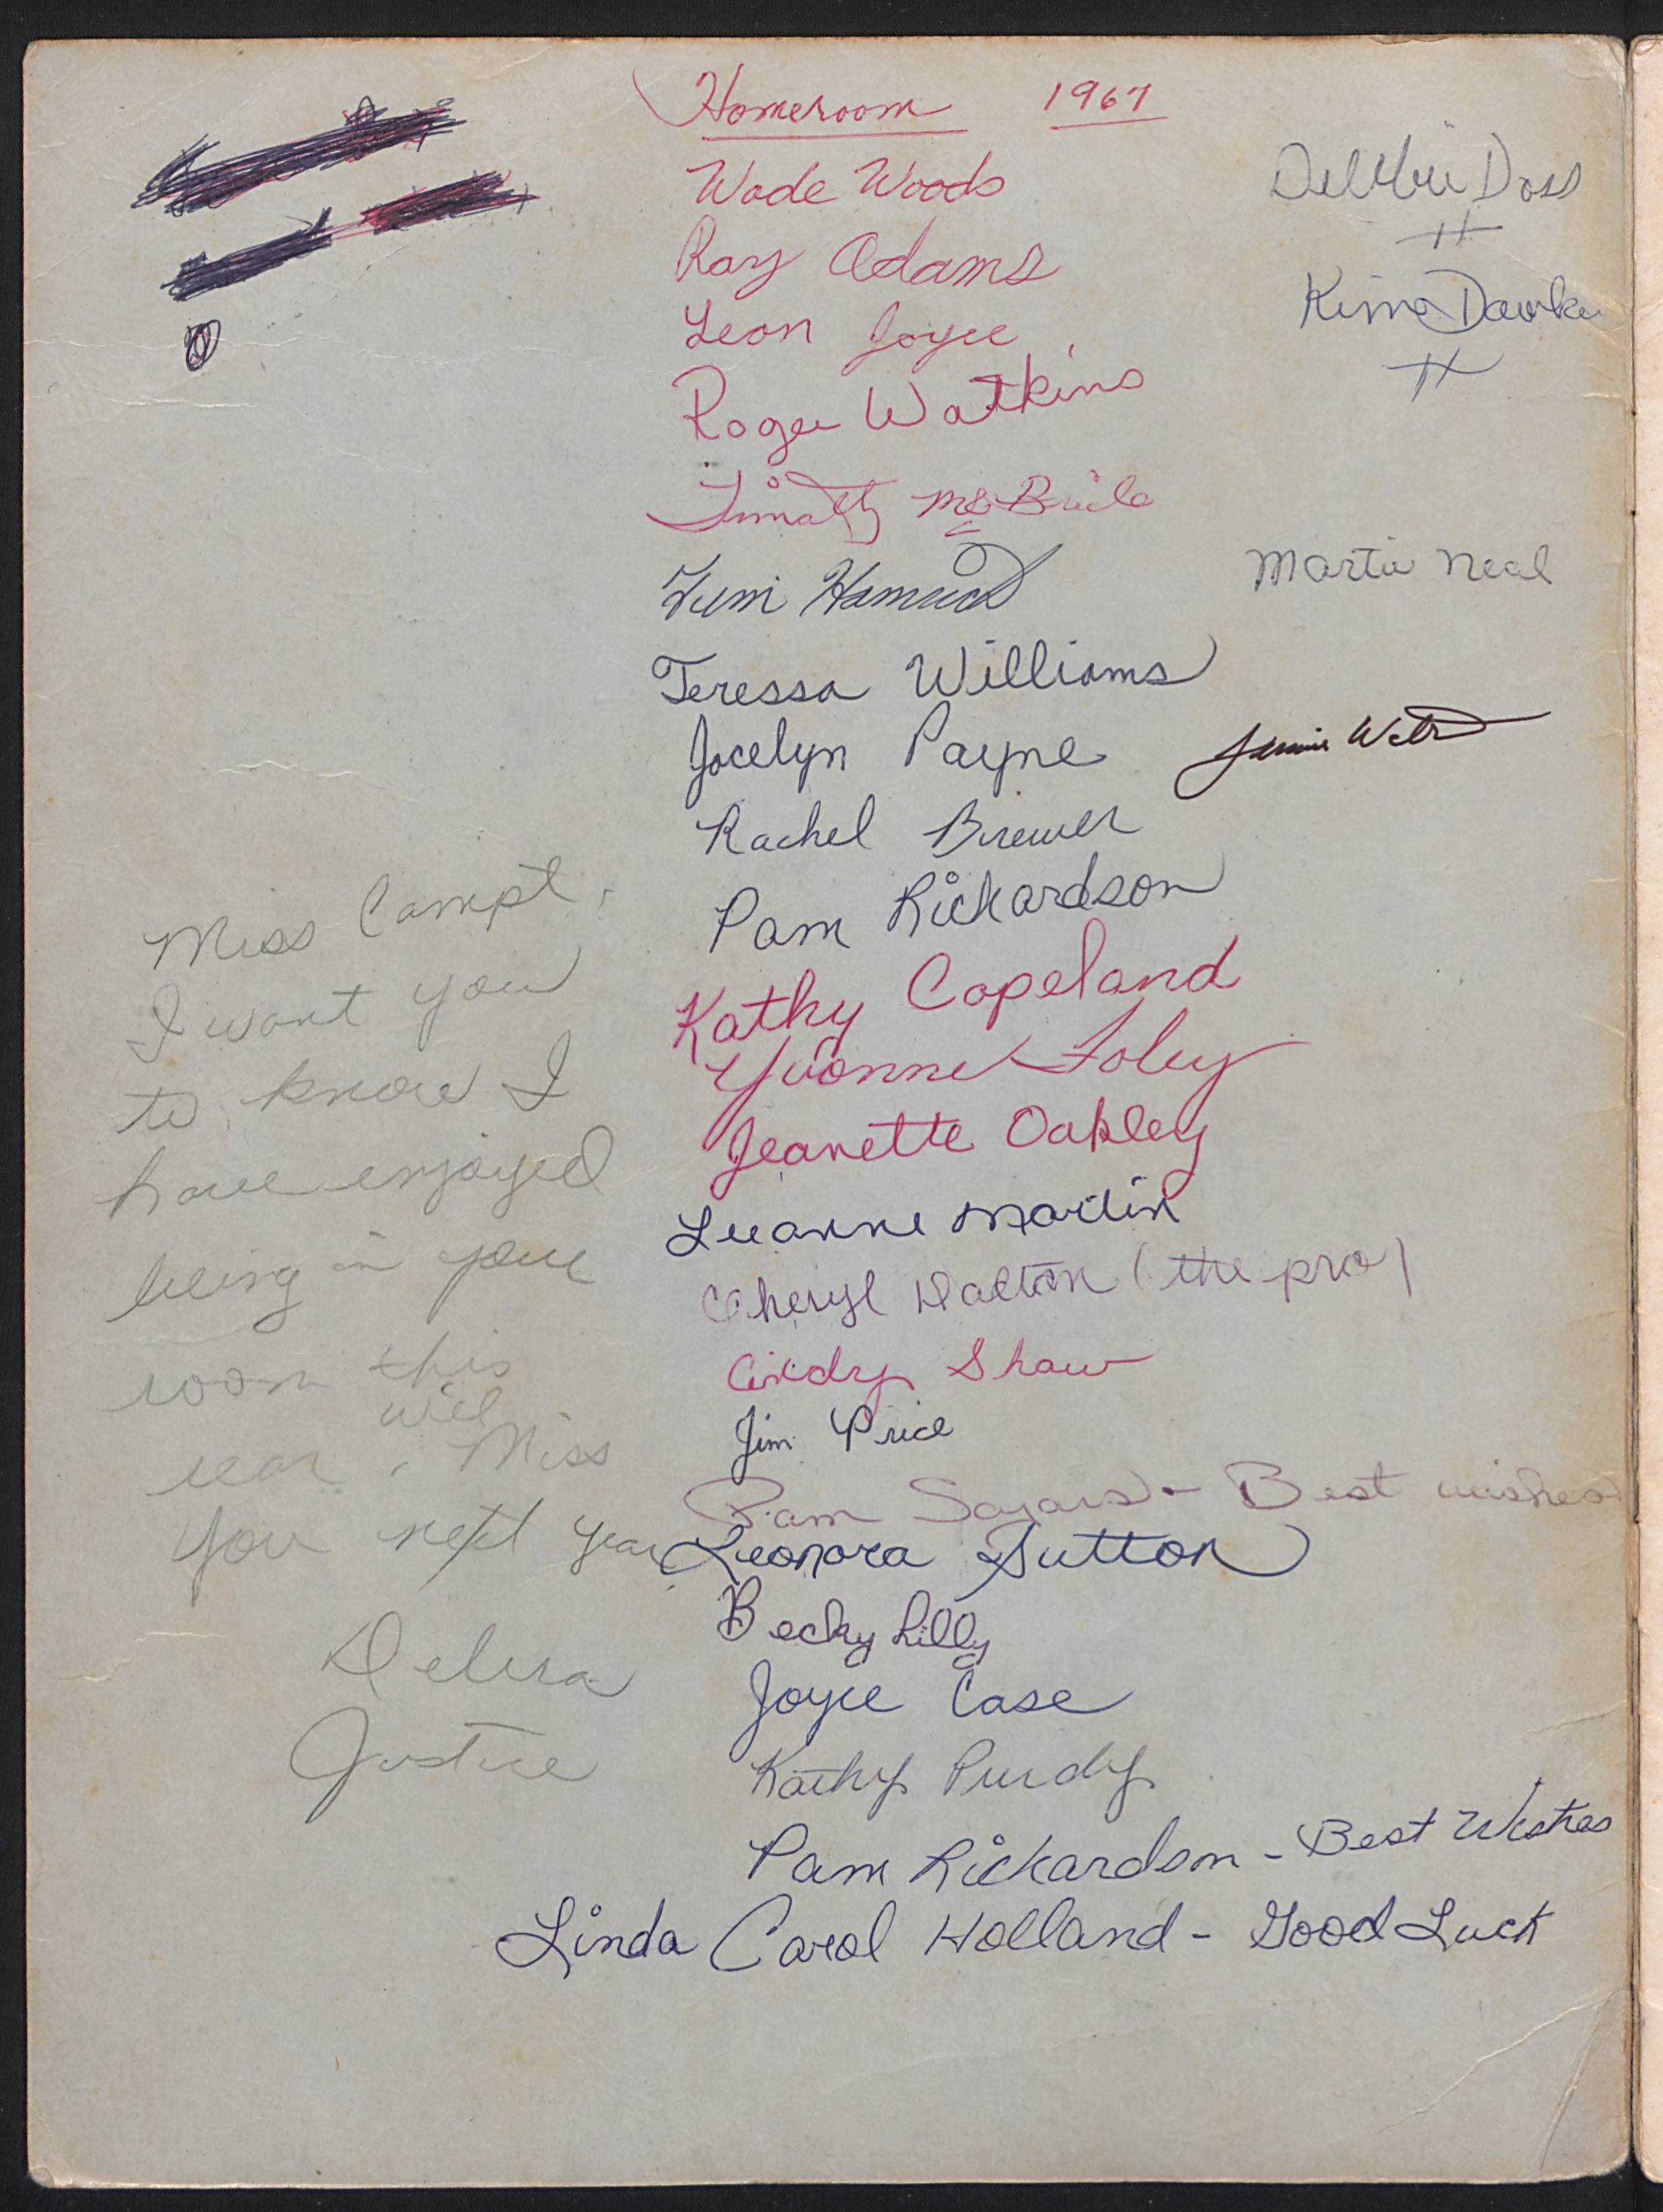 Homeroom 1967
Wade Woods
Ray Adams
Leon Joyce
Roger Watkins
Timothy McBride
Teressa Williams
Jocelyn Payne
Rachel Brewer
Pam Rickardson
Kathy Copeland
Yvonne Foley
Jeanette Oakley
Luanne Martin
Cheryl Dalton (the pro)
Cindy Shaw
Jim Price
Pam Sayars - Best wishes
Leonora Sutton
Becky Lilly
Joyce Case
Kathy Purdy
Pam Rickardson - Best Wishes
Linda Carol Holland - Good Luck
Debbie Doss
Kim
Martin Neal
Miss Campt,
I want you
to know I
have enjoyed
being in your
room this
year, will Miss
you next year
Debra
Justice